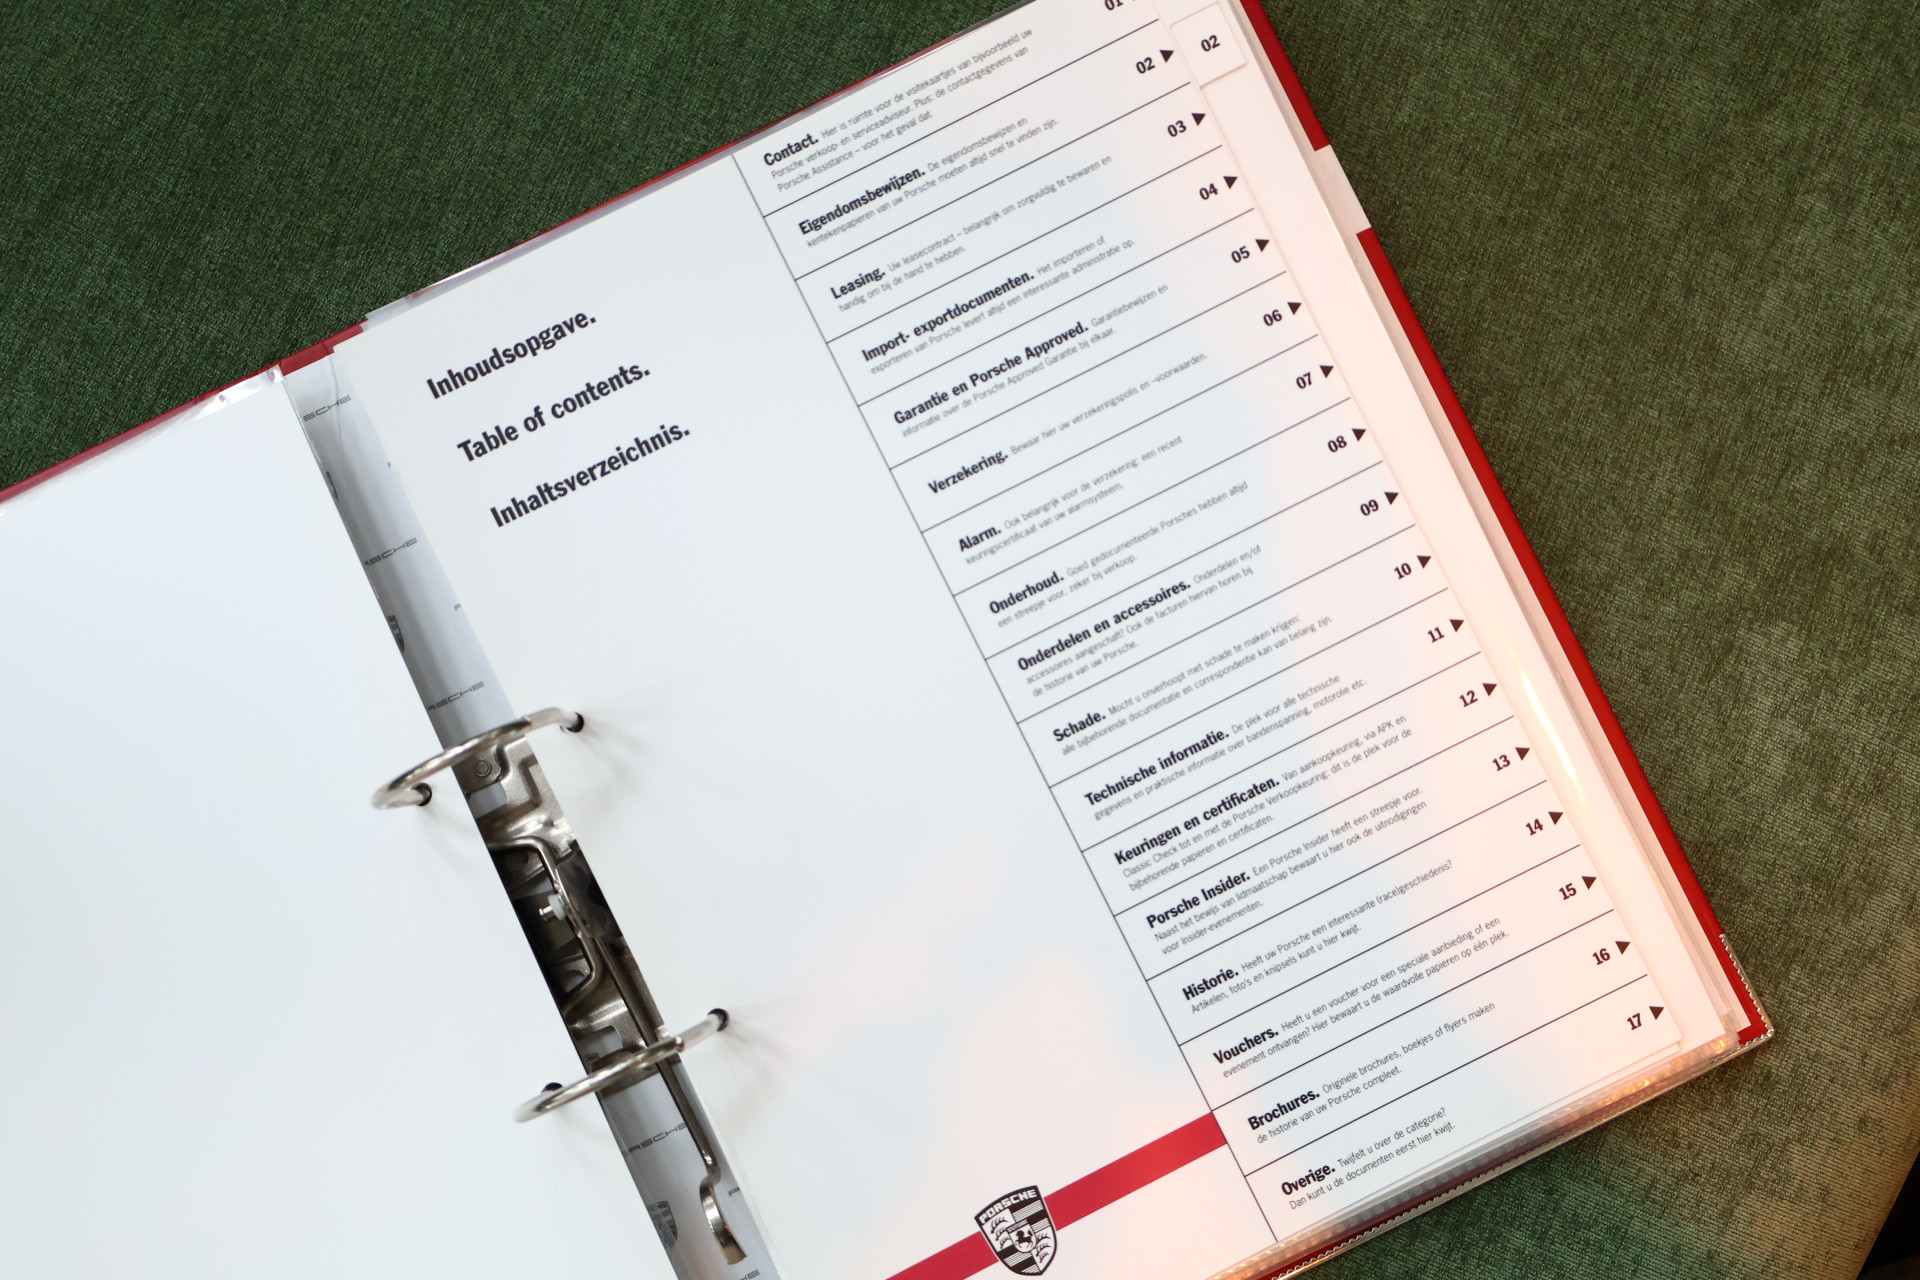 Inhoudsopgave.
Table of contents.
Inhaltsverzeichnis.
01
Contact. Hier is ruimte voor de visitekaartjes van bijvoorbeeld uw
Porsche verkoop- en serviceadviseur. Plus: de contactgegevens van
Porsche Assistance – voor het geval dat.
02
Eigendomsbewijzen. De eigendomsbewijzen en
kentekenpapieren van uw Porsche moeten altijd snel te vinden zijn.
03
Leasing. Uw leasecontract – belangrijk om zorgvuldig te bewaren en
handig om bij de hand te hebben.
04
Import- exportdocumenten. Het importeren of
exporteren van Porsche levert altijd een interessante administratie op.
05
Garantie en Porsche Approved. Garantiebewijzen en
informatie over de Porsche Approved Garantie bij elkaar.
06
Verzekering. Bewaar hier uw verzekeringspolis en –voorwaarden.
07
Alarm. Ook belangrijk voor de verzekering: een recent
keuringscertificaat van uw alarmsysteem.
08
Onderhoud. Goed gedocumenteerde Porsches hebben altijd
een streepje voor, zeker bij verkoop.
09
Onderdelen en accessoires. Onderdelen en/of
accessoires aangeschaft? Ook de facturen hiervan horen bij
de historie van uw Porsche.
10
Schade. Mocht u onverhoopt met schade te maken krijgen:
alle bijbehorende documentatie en correspondentie kan van belang zijn.
11
Technische informatie. De plek voor alle technische
gegevens en praktische informatie over bandenspanning, motorolie etc.
12
Keuringen en certificaten. Van aankoopkeuring, via APK en
Classic Check tot en met de Porsche Verkoopkeuring: dit is de plek voor de
bijbehorende papieren en certificaten.
13
Porsche Insider. Een Porsche Insider heeft een streepje voor.
Naast het bewijs van lidmaatschap bewaart u hier ook de uitnodigingen
voor Insider-evenementen.
14
Historie. Heeft uw Porsche een interessante (race)geschiedenis?
Artikelen, foto's en knipsels kunt u hier kwijt.
15
Vouchers. Heeft u een voucher voor een speciale aanbieding of een
evenement ontvangen? Hier bewaart u de waardvolle papieren op één plek.
16
Brochures. Originele brochures, boekjes of flyers maken
de historie van uw Porsche compleet.
17
Overige. Twijfelt u over de categorie?
Dan kunt u de documenten eerst hier kwijt.
02
PORSCHE